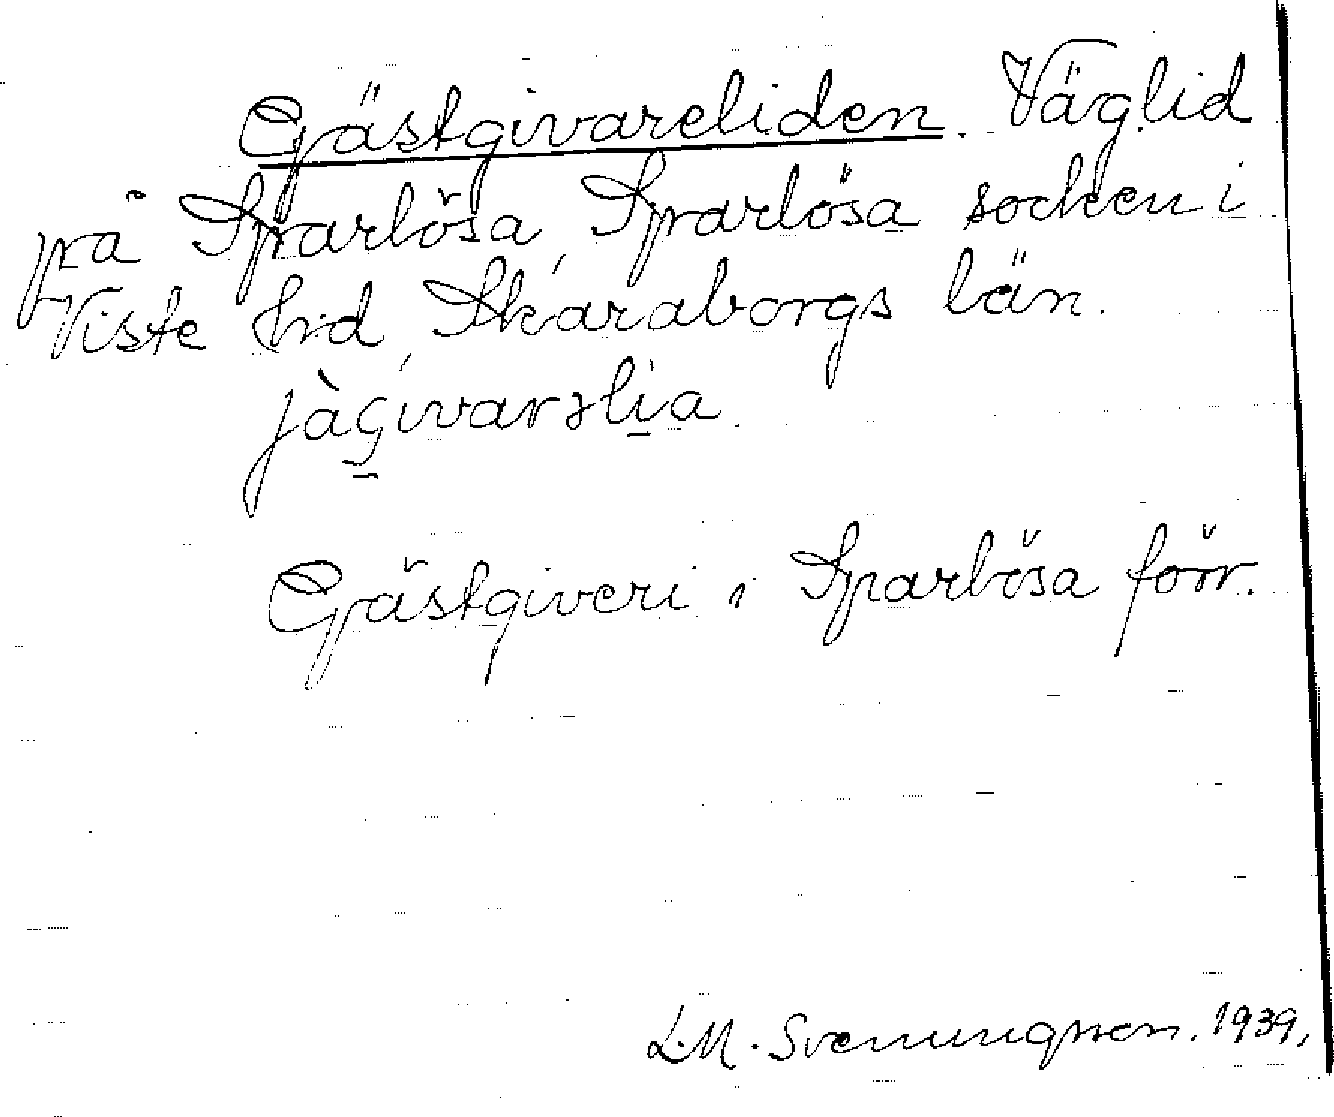 Gästgivareliden. Väglid
på Sparlösa, Sparlösa socken i
Viste hrd, Skaraborgs län.
jàʂivarslia.
Gästgiveri i Sparlösa förr.
L.M. Svenungsson. 1939.